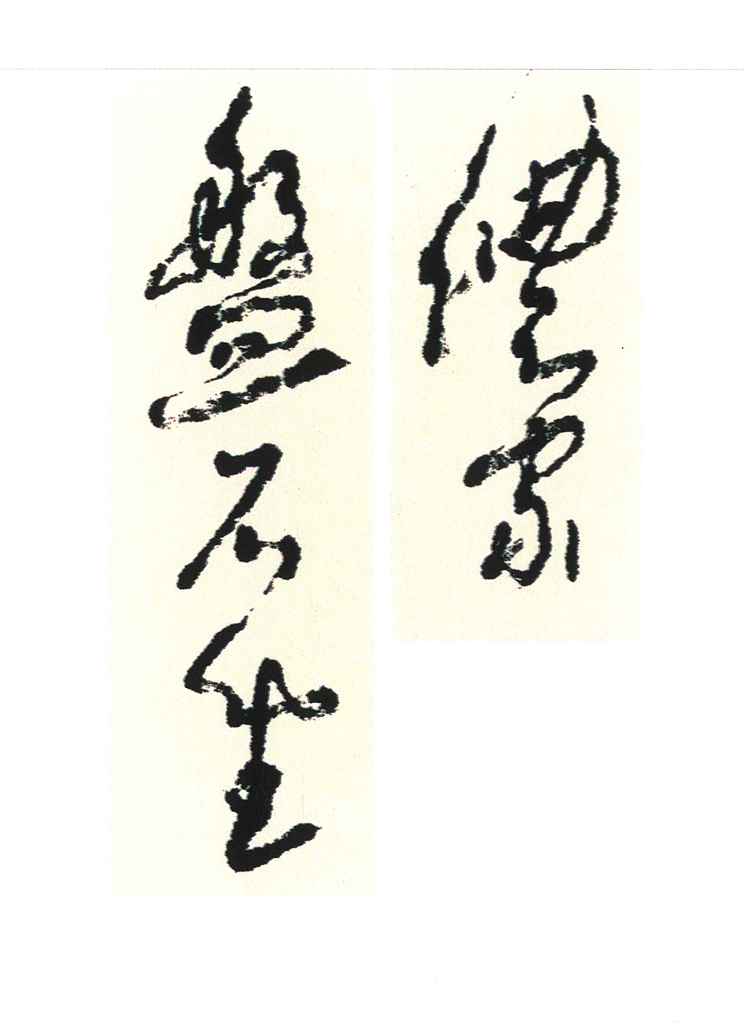 儂家
盤石坐